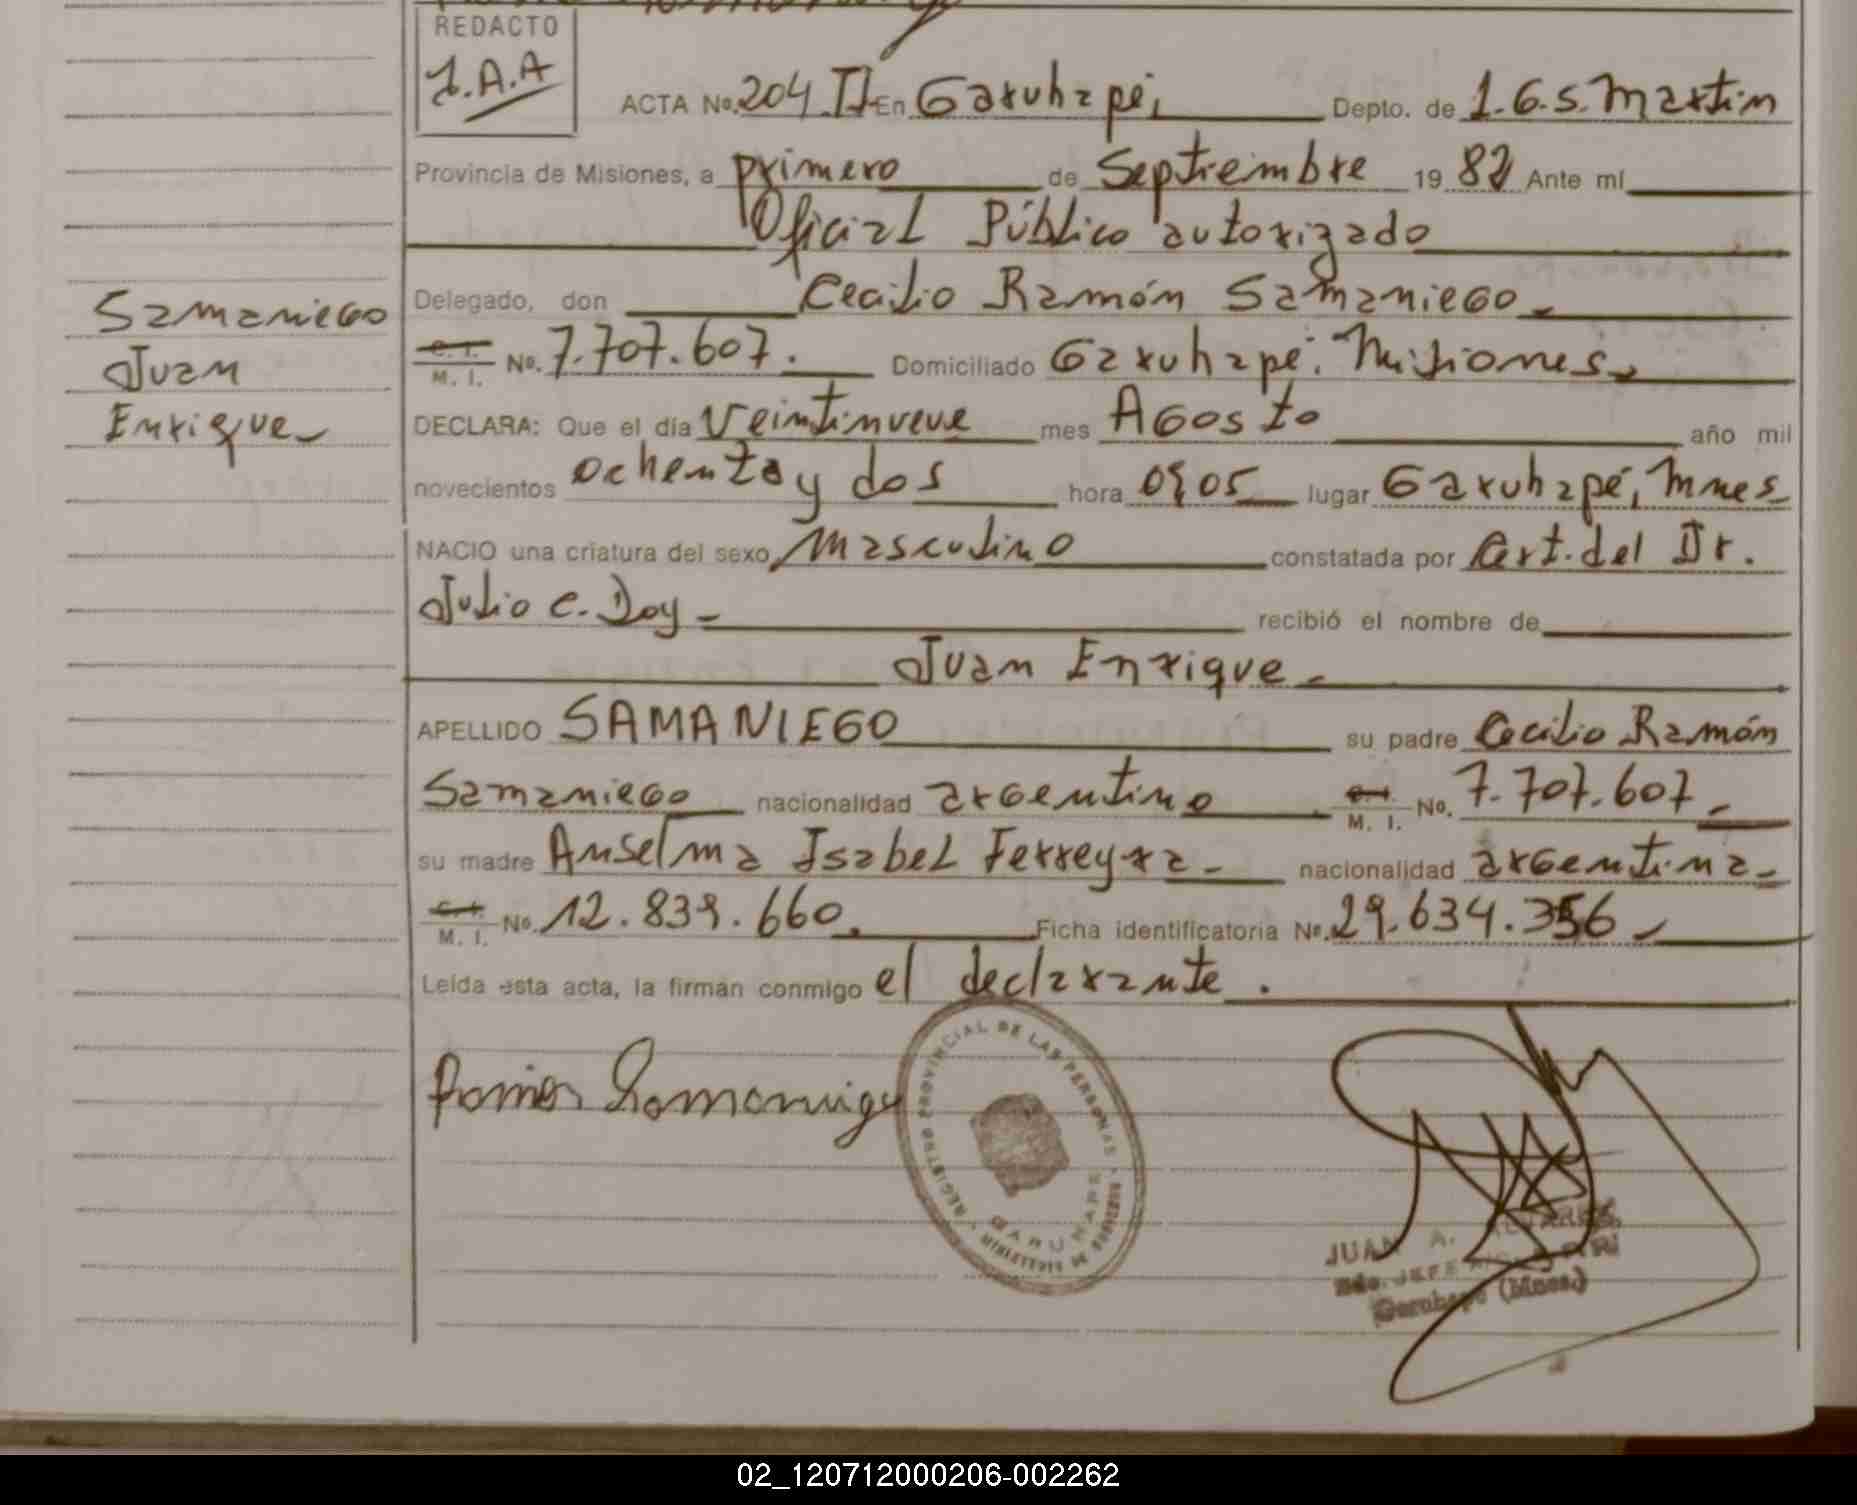 REDACTO
J.A.A
ACTA No. 204 II En Garuhapé, Depto. de L.G.S. Martin
Provincia de Misiones, a primero de Septiembre 19 82 Ante mí
Oficial Público autorizado
Delegado, don Cecilio Ramón Samaniego
C. I. M. I. No. 7.707.607. Domiciliado Garuhapé. Misiones
DECLARA: Que el día Veintinueve mes Agosto año mil
novecientos ochenta y dos hora 09,05 lugar Garuhapé, Mnes
NACIO una criatura del sexo Masculino constatada por Cert. del Dr.
Julio C. Doy recibió el nombre de
Juan Enrique
APELLIDO SAMANIEGO su padre Cecilio Ramón
Samaniego nacionalidad argentino C. I. M. I. No. 7.707.607
su madre Anselma Isabel Ferreyra nacionalidad argentina
C. I. M. I. No. 12.839.660. Ficha identificatoria No. 29.634.356
Leída esta acta, la firman conmigo el declarante.
Samaniego
Juan
Enrique
REGISTRO PROVINCIAL DE LAS PERSONAS
GARUHAPE
MINISTERIO DE
JUAN A.
Garuhapé (Mnes.)
02_120712000206-002262